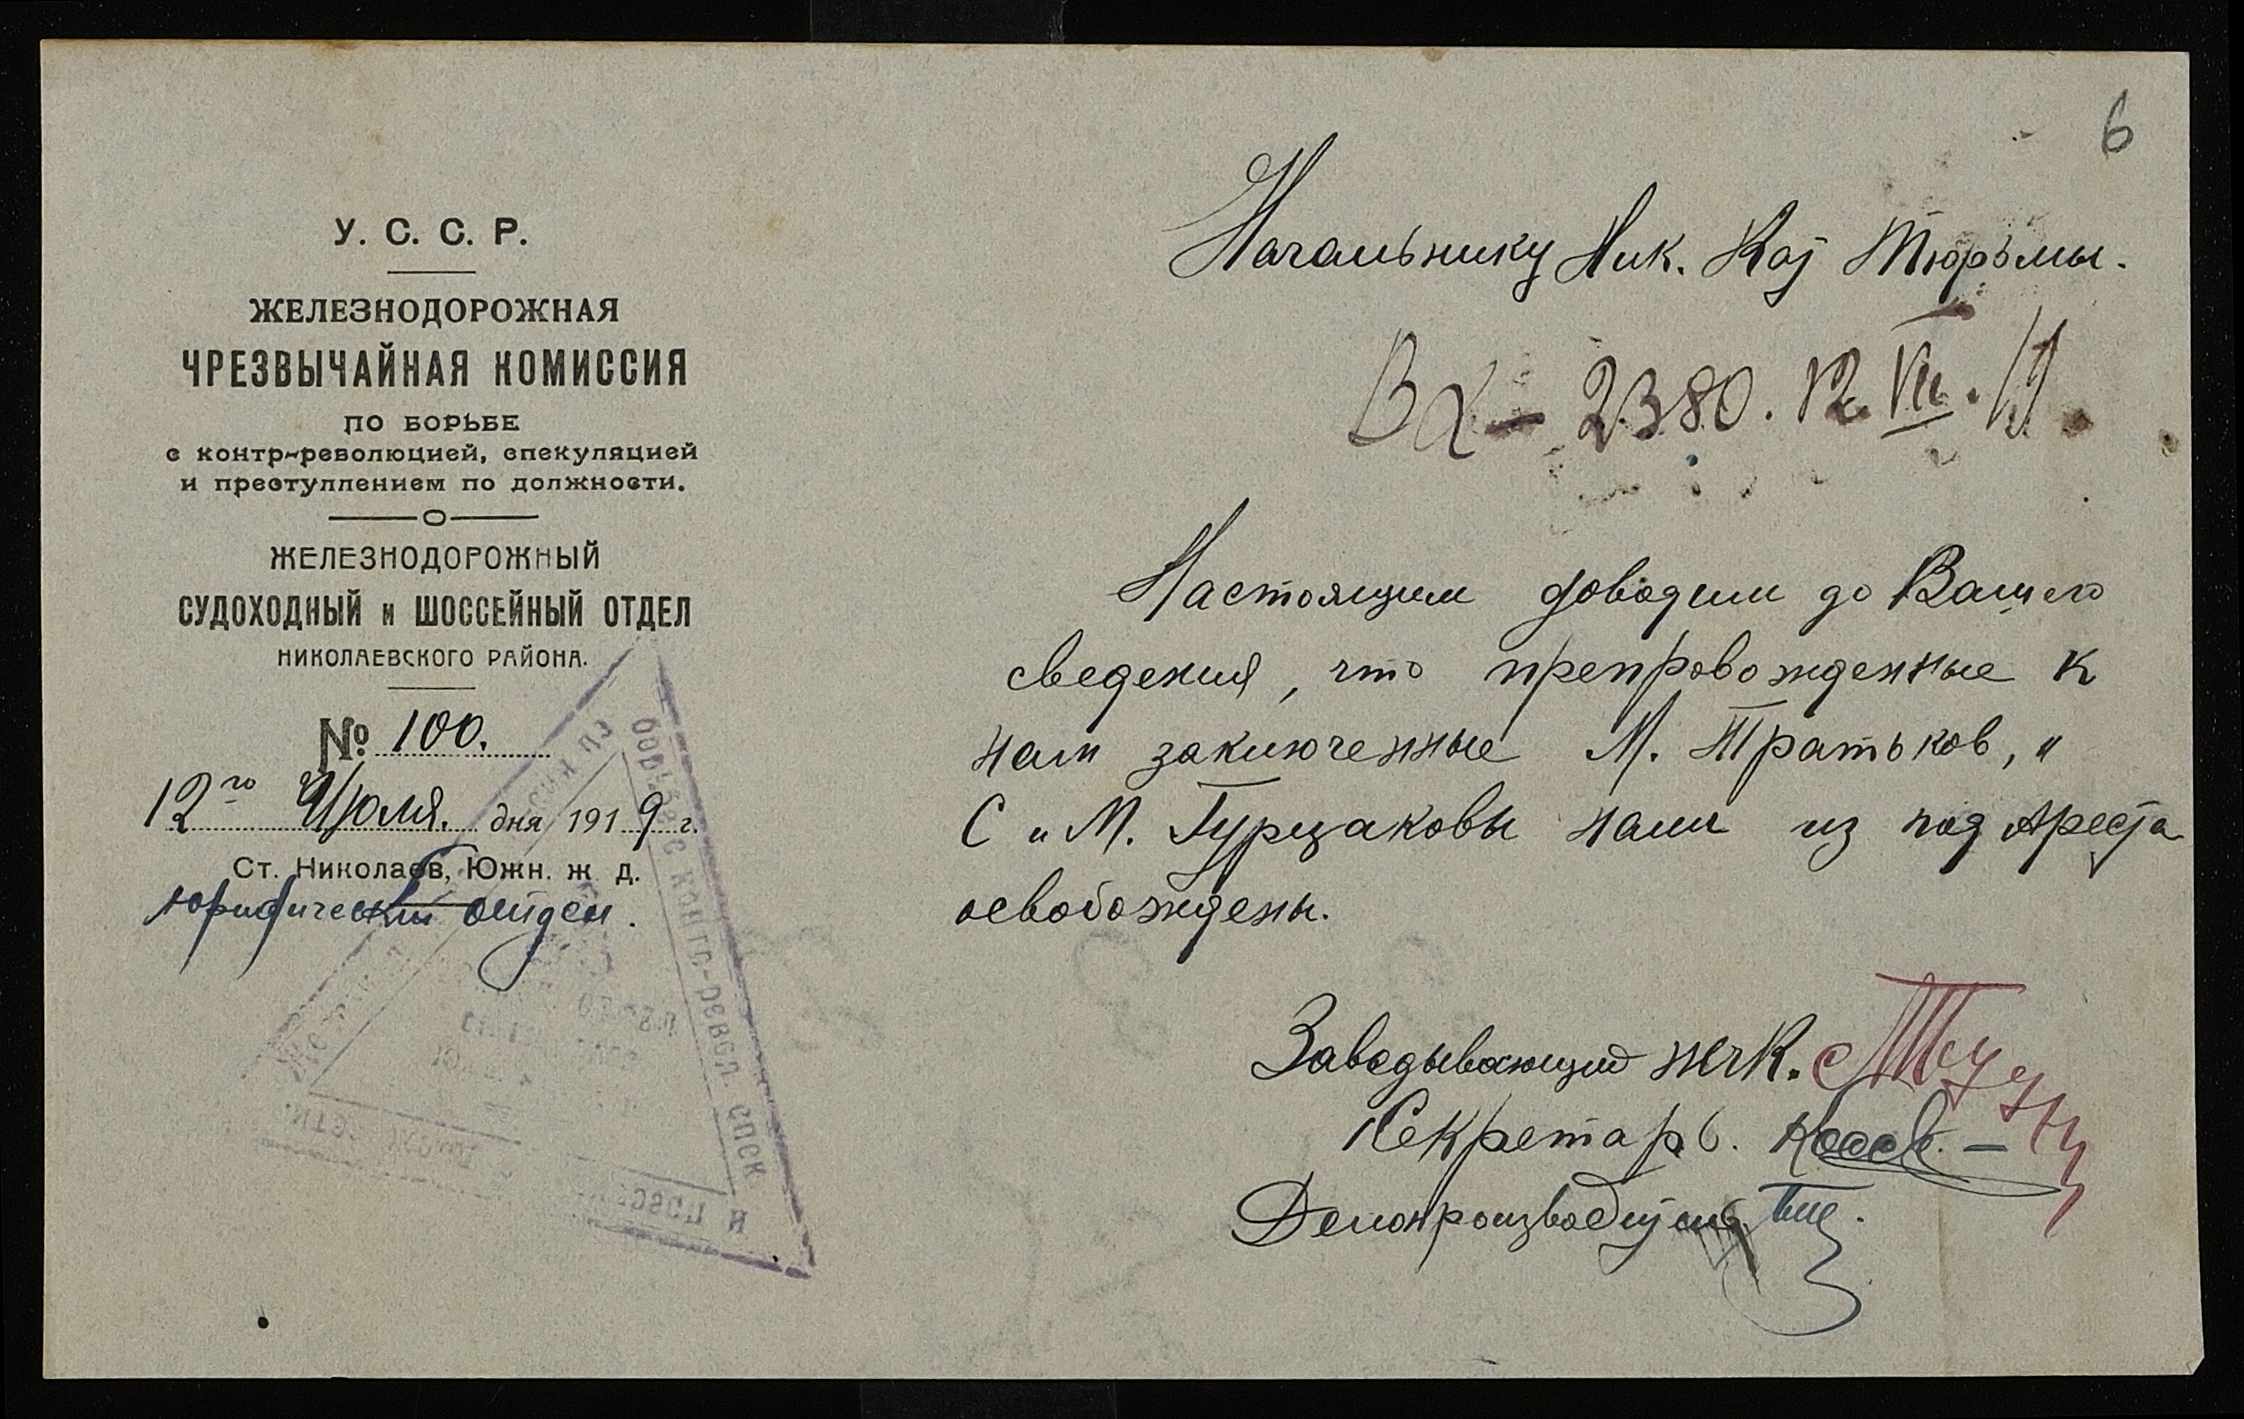 6
У. С. С. Р.
ЖЕЛЕЗНОДОРОЖНАЯ
ЧРЕЗВЫЧАЙНАЯ КОМИССИЯ
ПО БОРЬБЕ
с контр-революцией, спекуляцией
и преступлением по должности.
ЖЕЛЕЗНОДОРОЖНЫЙ
СУДОХОДНЫЙ и ШОССЕЙНЫЙ ОТДЕЛ
НИКОЛАЕВСКОГО РАЙОНА.
№ 100.
12го Июля. дня 1919 г.
Ст. Николаев, Южн. ж д.
юридический отдел.
борьбе с контр-револ. спек
и шоссе
Начальнику Ник. Кат Тюрьмы.
Вх– 2380. 12 VII. 19
Настоящим доводим до Вашего
сведения, что препровожденные к
нам заключенные М. Тратьков, и
С и М. Гурцаковы нами из под Ареста
освобождены.
Заведывающий ЖЧК.
Секретарь.
Делопроизводитель